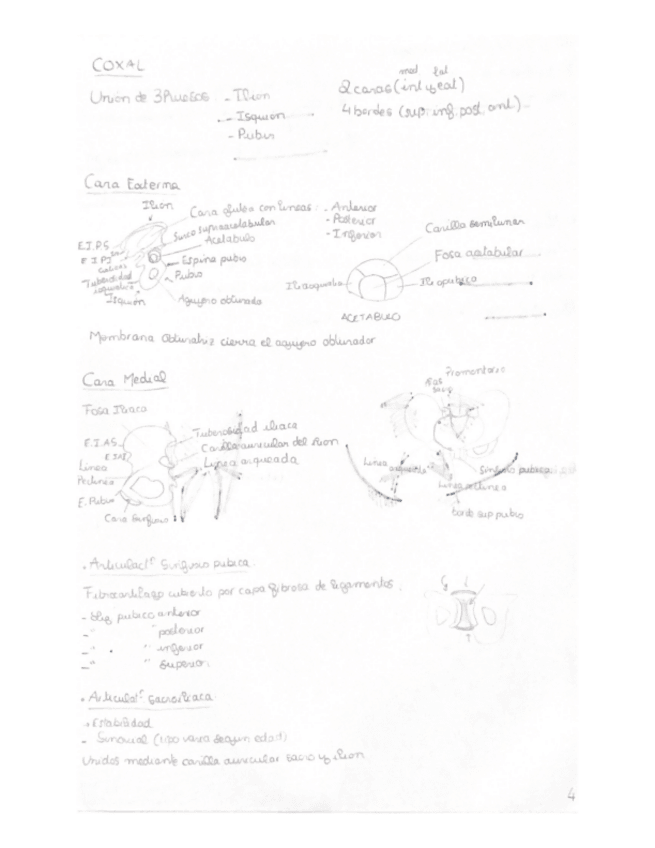 COXAL
Unión de 3 huesos - Ilion
- Isquion
- Pubis
med lat
2 caras (int y eal)
4 bordes (sup. inf. post. ant.)
Cara Externa
Ilion
Cara glutea con lineas: - Anterior
- Posterior
- Inferior
Surco supraacetabular
Acetabulo
E.I.P.S
E.I.P.I
Espina pubis
Pubis
Tuberosidad
isquiatica
Isquion
Agujero obturado
Carilla semilunar
Fosa acetabular
Ilioisquiatica
Iliopubica
ACETABULO
Membrana Obturatriz cierra el agujero obturador
Cara Medial
Fosa Iliaca
Tuberosidad iliaca
E.I.A.S
Carilla auricular del ilion
E.I.A.I
Linea arqueada
Linea
Pectinea
E. Pubis
Cara Sinfisis
Promontorio
Linea
arqueada
Sinfisis pubica
Linea pectinea
borde sup pubis
. Articulacⁿ Sinfisis pubica
Fibrocartilago cubierto por capa fibrosa de ligamentos.
- Lig. pubico anterior
- " " posterior
- " " inferior
- " " superior
. Articulacⁿ Sacroiliaca
+ Estabilidad
- Sinovial (tipo varia segun edad)
Unidos mediante carilla auricular sacro y ilion
4